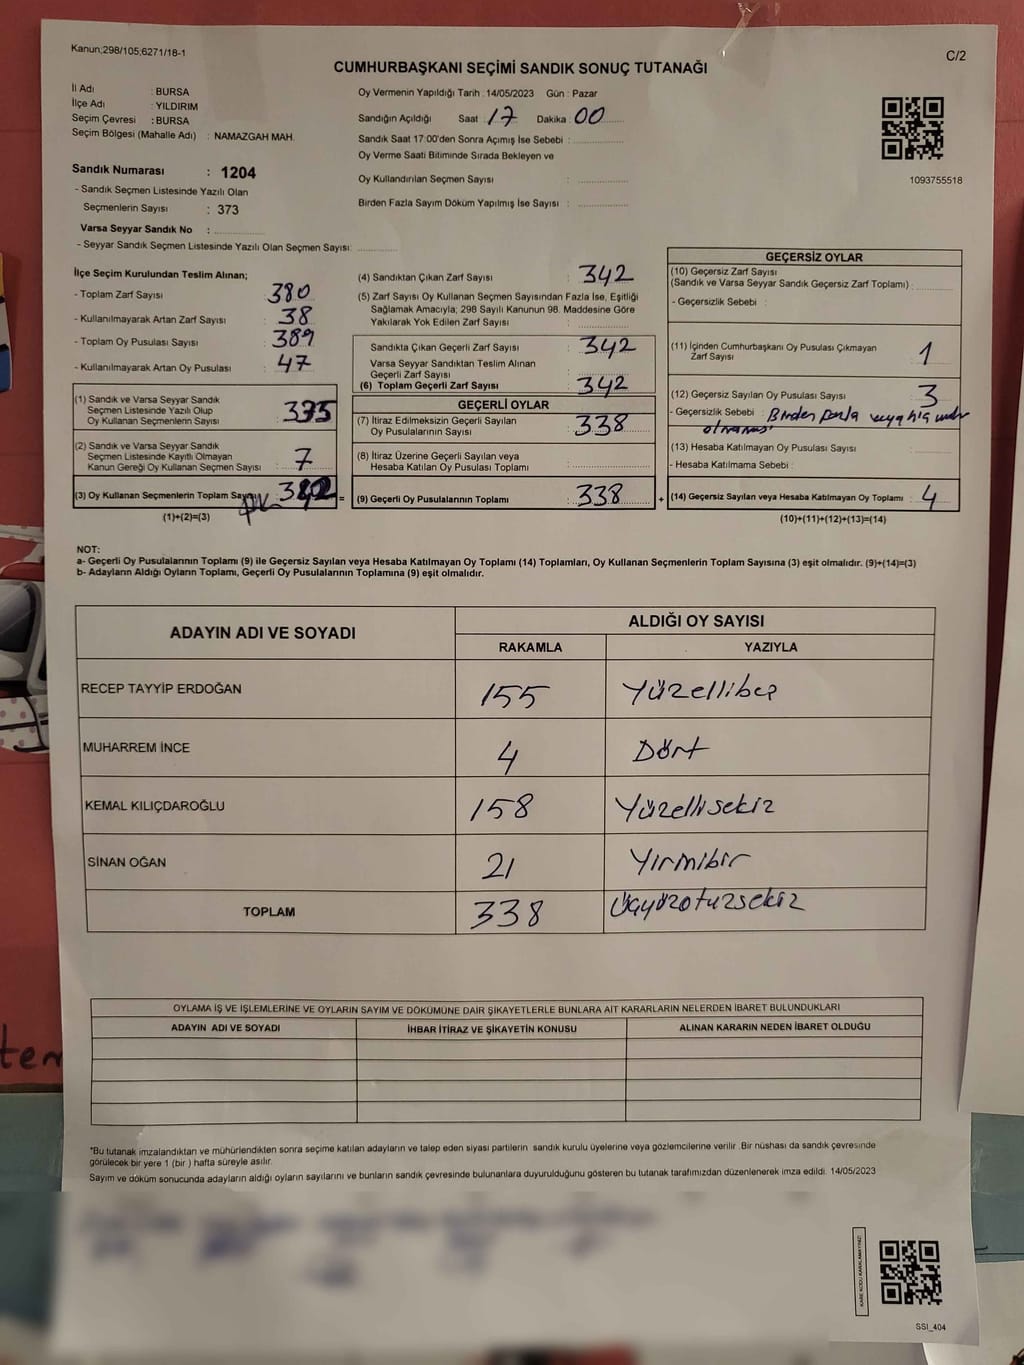 Kanun;298/105;6271/18-1
C/2
CUMHURBAŞKANI SEÇİMİ SANDIK SONUÇ TUTANAĞI
İl Adı : BURSA
İlçe Adı : YILDIRIM
Seçim Çevresi : BURSA
Seçim Bölgesi (Mahalle Adı) : NAMAZGAH MAH.
Sandık Numarası : 1204
- Sandık Seçmen Listesinde Yazılı Olan
Seçmenlerin Sayısı : 373
Varsa Seyyar Sandık No :
- Seyyar Sandık Seçmen Listesinde Yazılı Olan Seçmen Sayısı:
Oy Vermenin Yapıldığı Tarih : 14/05/2023 Gün : Pazar
Sandığın Açıldığı Saat : 17 Dakika : 00
Sandık Saat 17:00'den Sonra Açımış İse Sebebi :
Oy Verme Saati Bitiminde Sırada Bekleyen ve
Oy Kullandırılan Seçmen Sayısı :
Birden Fazla Sayım Döküm Yapılmış İse Sayısı :
1093755518
İlçe Seçim Kurulundan Teslim Alınan;
- Toplam Zarf Sayısı : 380
- Kullanılmayarak Artan Zarf Sayısı : 38
- Toplam Oy Pusulası Sayısı : 389
- Kullanılmayarak Artan Oy Pusulası : 47
(1) Sandık ve Varsa Seyyar Sandık
Seçmen Listesinde Yazılı Olup
Oy Kullanan Seçmenlerin Sayısı : 335
(2) Sandık ve Varsa Seyyar Sandık
Seçmen Listesinde Kayıtlı Olmayan
Kanun Gereği Oy Kullanan Seçmen Sayısı : 7
(3) Oy Kullanan Seçmenlerin Toplam Sayısı : 342 =
(1)+(2)=(3)
(4) Sandıktan Çıkan Zarf Sayısı : 342
(5) Zarf Sayısı Oy Kullanan Seçmen Sayısından Fazla İse, Eşitliği
Sağlamak Amacıyla; 298 Sayılı Kanunun 98. Maddesine Göre
Yakılarak Yok Edilen Zarf Sayısı :
Sandıkta Çıkan Geçerli Zarf Sayısı : 342
Varsa Seyyar Sandıktan Teslim Alınan
Geçerli Zarf Sayısı :
(6) Toplam Geçerli Zarf Sayısı : 342
GEÇERLİ OYLAR
(7) İtiraz Edilmeksizin Geçerli Sayılan
Oy Pusulalarının Sayısı : 338
(8) İtiraz Üzerine Geçerli Sayılan veya
Hesaba Katılan Oy Pusulası Toplamı :
(9) Geçerli Oy Pusulalarının Toplamı : 338 +
GEÇERSİZ OYLAR
(10) Geçersiz Zarf Sayısı
(Sandık ve Varsa Seyyar Sandık Geçersiz Zarf Toplamı) :
- Geçersizlik Sebebi :
(11) İçinden Cumhurbaşkanı Oy Pusulası Çıkmayan
Zarf Sayısı : 1
(12) Geçersiz Sayılan Oy Pusulası Sayısı : 3
- Geçersizlik Sebebi : Birden fazla veya hiç
olmaması
(13) Hesaba Katılmayan Oy Pusulası Sayısı :
- Hesaba Katılmama Sebebi :
(14) Geçersiz Sayılan veya Hesaba Katılmayan Oy Toplamı : 4
(10)+(11)+(12)+(13)=(14)
NOT:
a- Geçerli Oy Pusulalarının Toplamı (9) ile Geçersiz Sayılan veya Hesaba Katılmayan Oy Toplamı (14) Toplamları, Oy Kullanan Seçmenlerin Toplam Sayısına (3) eşit olmalıdır. (9)+(14)=(3)
b- Adayların Aldığı Oyların Toplamı, Geçerli Oy Pusulalarının Toplamına (9) eşit olmalıdır.
ADAYIN ADI VE SOYADI
ALDIĞI OY SAYISI
RAKAMLA YAZIYLA
RECEP TAYYİP ERDOĞAN 155 Yüzellibeş
MUHARREM İNCE 4 Dört
KEMAL KILIÇDAROĞLU 158 Yüzellisekiz
SİNAN OĞAN 21 Yirmibir
TOPLAM 338 Üçyüzotuzsekiz
OYLAMA İŞ VE İŞLEMLERİNE VE OYLARIN SAYIM VE DÖKÜMÜNE DAİR ŞİKAYETLERLE BUNLARA AİT KARARLARIN NELERDEN İBARET BULUNDUKLARI
ADAYIN ADI VE SOYADI İHBAR İTİRAZ VE ŞİKAYETİN KONUSU ALINAN KARARIN NEDEN İBARET OLDUĞU
*Bu tutanak imzalandıktan ve mühürlendikten sonra seçime katılan adayların ve talep eden siyasi partilerin sandık kurulu üyelerine veya gözlemcilerine verilir .Bir nüshası da sandık çevresinde
görülecek bir yere 1 (bir ) hafta süreyle asılır.
Sayım ve döküm sonucunda adayların aldığı oyların sayılarını ve bunların sandık çevresinde bulunanlara duyurulduğunu gösteren bu tutanak tarafımızdan düzenlenerek imza edildi. 14/05/2023
KARE KODU KARALAMAYINIZ!
SSİ_404